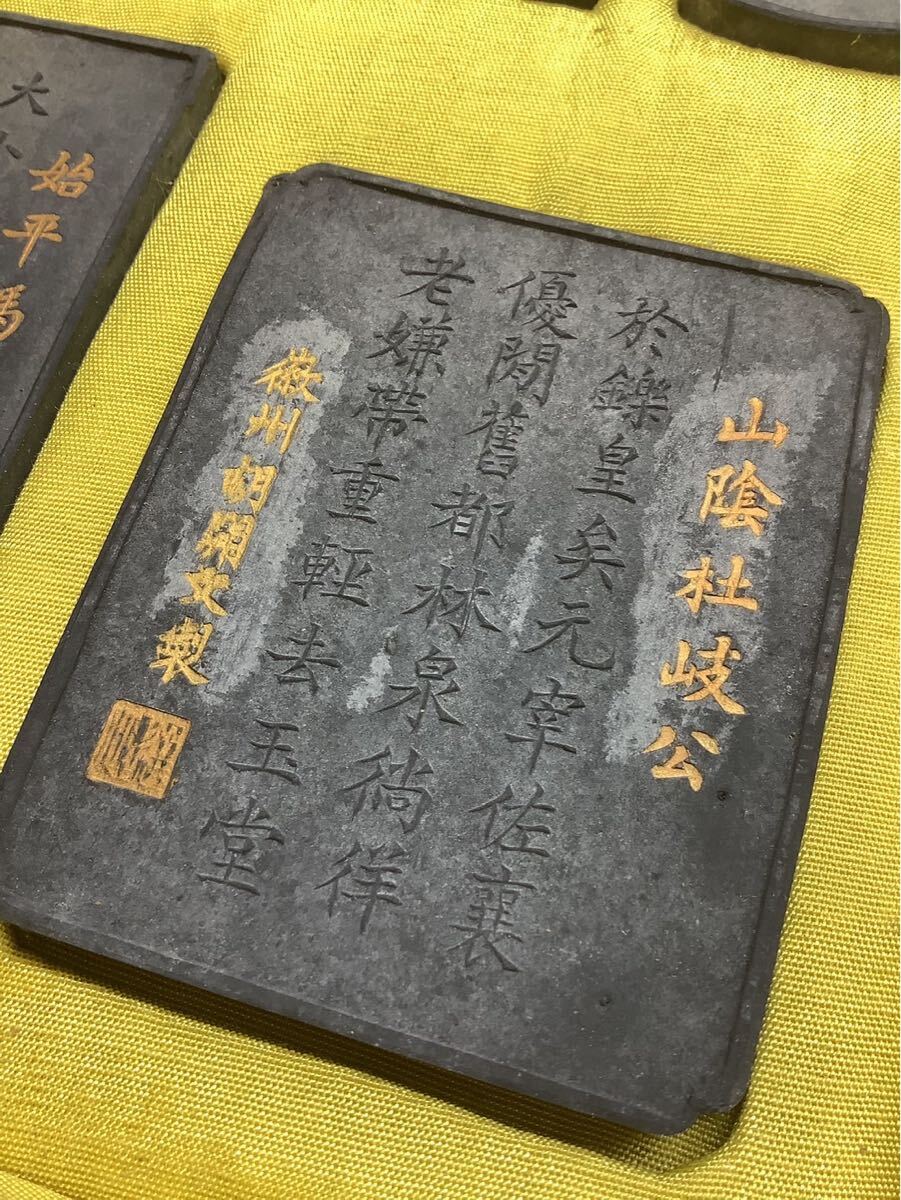 山陰杜岐公
於鑠皇矣元宰佐襄
優閒舊都林泉徜徉
老嫌帶重輕去玉堂
徽州胡開文製
始平馮
大